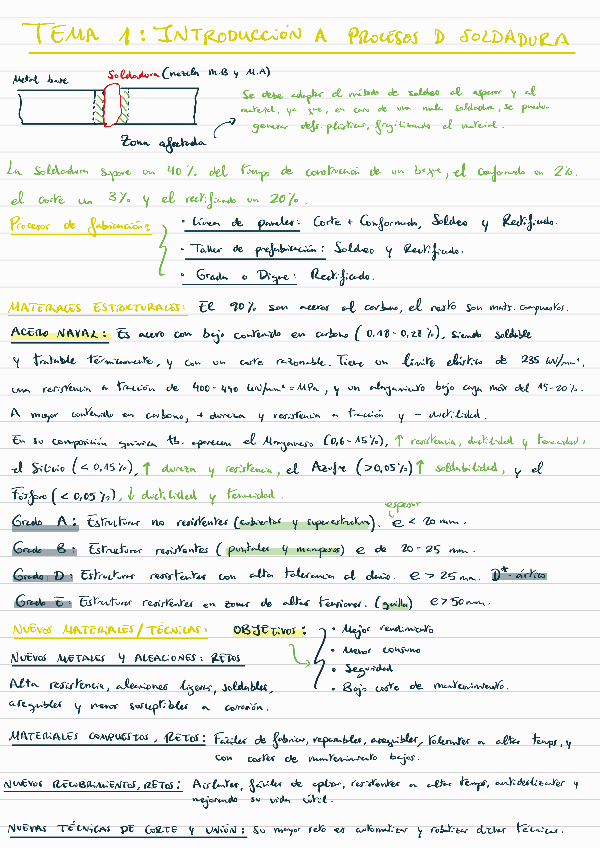 TEMA 1: INTRODUCCIÓN A PROCESOS D SOLDADURA
Metal base
Soldadura (mezcla M.B y M.A)
Zona afectada
Se debe adaptar el método de soldeo al espesor y al
material, ya que, en caso de una mala soldadura, se puede
generar defs. plásticas, fragilizando el material.
La Soldadura supone un 40% del tiempo de construcción de un buque, el conformado un 2%.
el corte un 3% y el rectificado un 20%.
Procesos de fabricación:
• Línea de paneles: Corte + Conformado, Soldeo y Rectificado.
• Taller de prefabricación: Soldeo y Rectificado.
• Grada o Dique: Rectificado.
MATERIALES ESTRUCTURALES: El 90% son aceros al carbono, el resto son mats. compuestos.
ACERO NAVAL: Es acero con bajo contenido en carbono (0.18-0,28%), siendo soldable
y tratable térmicamente, y con un coste razonable. Tiene un límite elástico de 235 kN/mm².
una resistencia a tracción de 400-490 kN/mm² = MPa, y un alargamiento bajo carga máx del 15-20%.
A mayor contenido en carbono, + dureza y resistencia a tracción y - ductilidad.
En su composición química tb. aparecen el Manganeso (0,6-15%), ↑ resistencia, ductilidad y tenacidad,
el Silicio (< 0,15%), ↑ dureza y resistencia, el Azufre (>0,05%) ↑ soldabilidad, y el
Fósforo (< 0,05%), ↓ ductilidad y tenacidad.
espesor
Grado A: Estructuras no resistentes (cubiertas y superestructura). e < 20 mm.
Grado B: Estructuras resistentes (puntales y mamparos) e de 20-25 mm.
Grado D: Estructuras resistentes con alta tolerancia al daño. e > 25 mm. D* - ártico
Grado E: Estructuras resistentes en zonas de altas tensiones. (quilla) e > 50 mm.
NUEVOS MATERIALES/TÉCNICAS: OBJETIVOS:
• Mejor rendimiento
• Menor consumo
• Seguridad
• Bajo coste de mantenimiento.
NUEVOS METALES Y ALEACIONES: RETOS
Alta resistencia, aleaciones ligeras, soldables,
asequibles y menos susceptibles a corrosión.
MATERIALES COMPUESTOS, RETOS: Fáciles de fabricar, reparables, asequibles, tolerantes a altas temps, y
con costes de mantenimiento bajos.
NUEVOS RECUBRIMIENTOS, RETOS: Aislantes, fáciles de aplicar, resistentes a altas temps, antideslizantes y
mejorando su vida útil.
NUEVAS TÉCNICAS DE CORTE Y UNIÓN: Su mayor reto es automatizar y robotizar dichas técnicas.